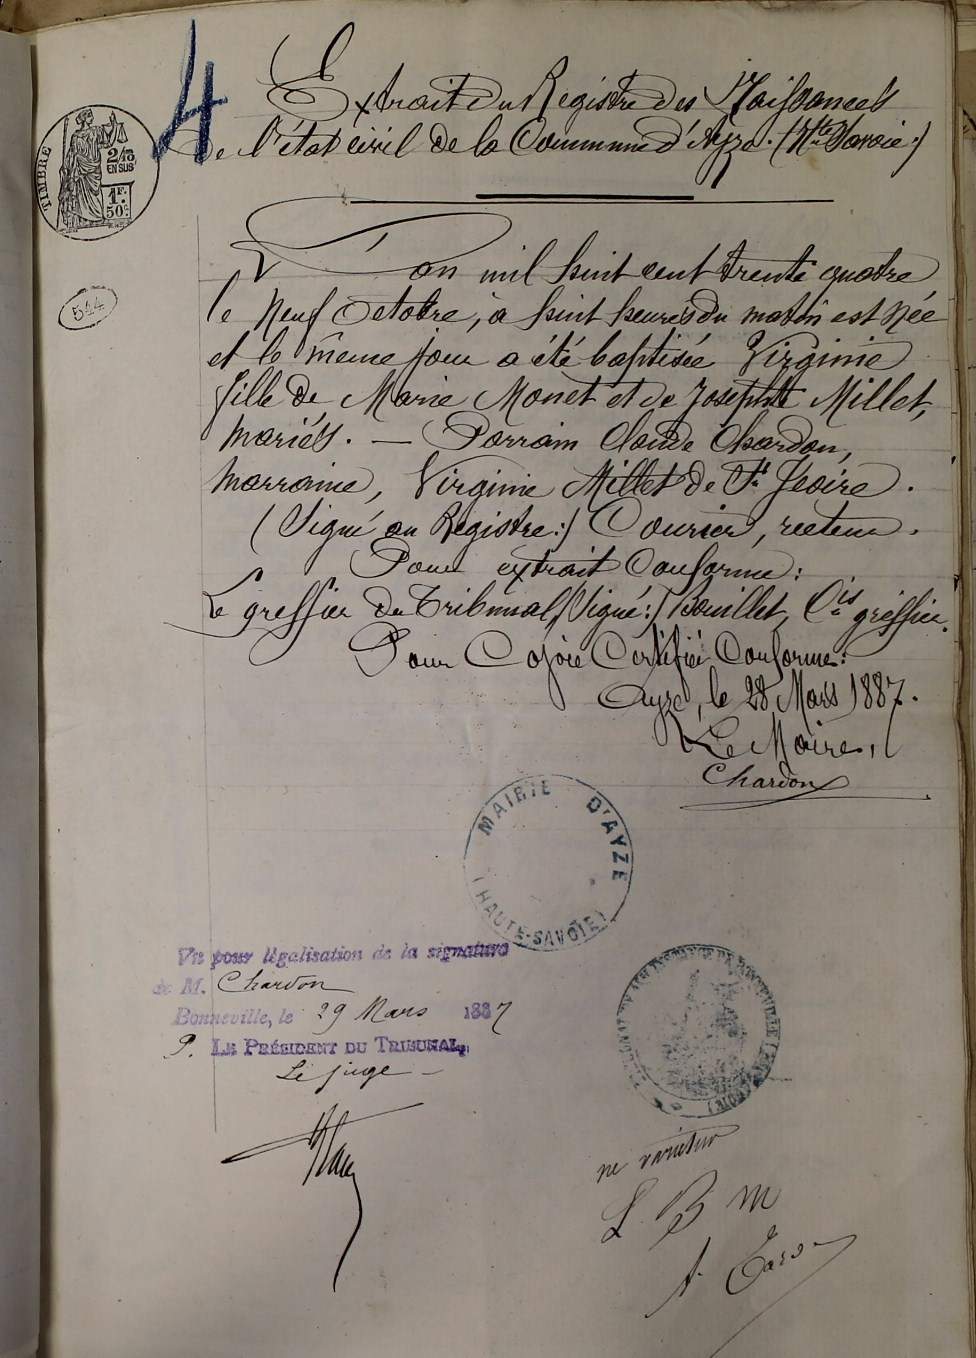 4
Extrait du Registre des Naissances
de l'état civil de la Commune d'Ayze. (Hte Savoie.)
TIMBRE
2/10
EN SUS
1F.
50c.
544
L'an mil huit cent trente quatre
le neuf Octobre, à huit heures du matin est née
et le même jour a été baptisée Virginie
fille de Marie Monet et de Josephte Millet,
mariés. — Parrain Claude Chardon,
marraine, Virginie Millet de St. Jeoire.
(Signé au Registre:) Courier, recteur.
Pour extrait conforme:
Le greffier du Tribunal (Signé:) Bouillet, Cis greffier.
Pour Copie Certifiée Conforme:
Ayze, le 28 Mars 1887.
Le Maire,
Chardon
MAIRIE D'AYZE
(HAUTE-SAVOIE)
Vu pour légalisation de la signature
de M. Chardon
Bonneville, le 29 Mars 1887
P. LE PRÉSIDENT DU TRIBUNAL,
Le juge
TRIBUNAL DE 1ERE INSTANCE DE BONNEVILLE
ne varietur
L B M
A.